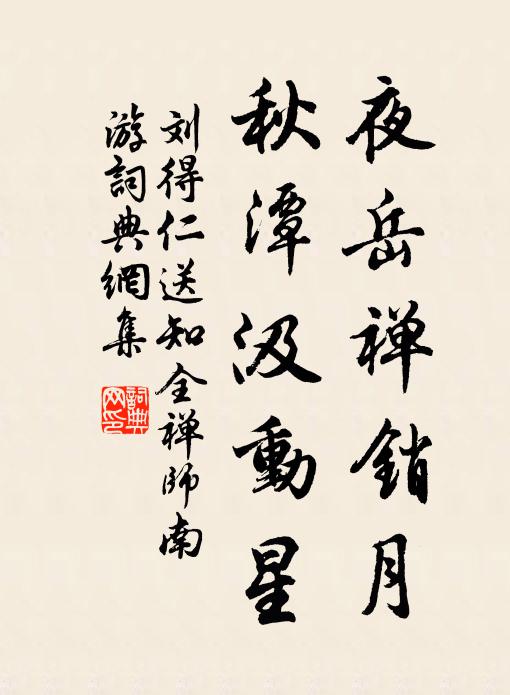 夜岳禅銷月
秋潭汲動星
刘得仁送知全禅師南
游詞典網集
詞典
网印